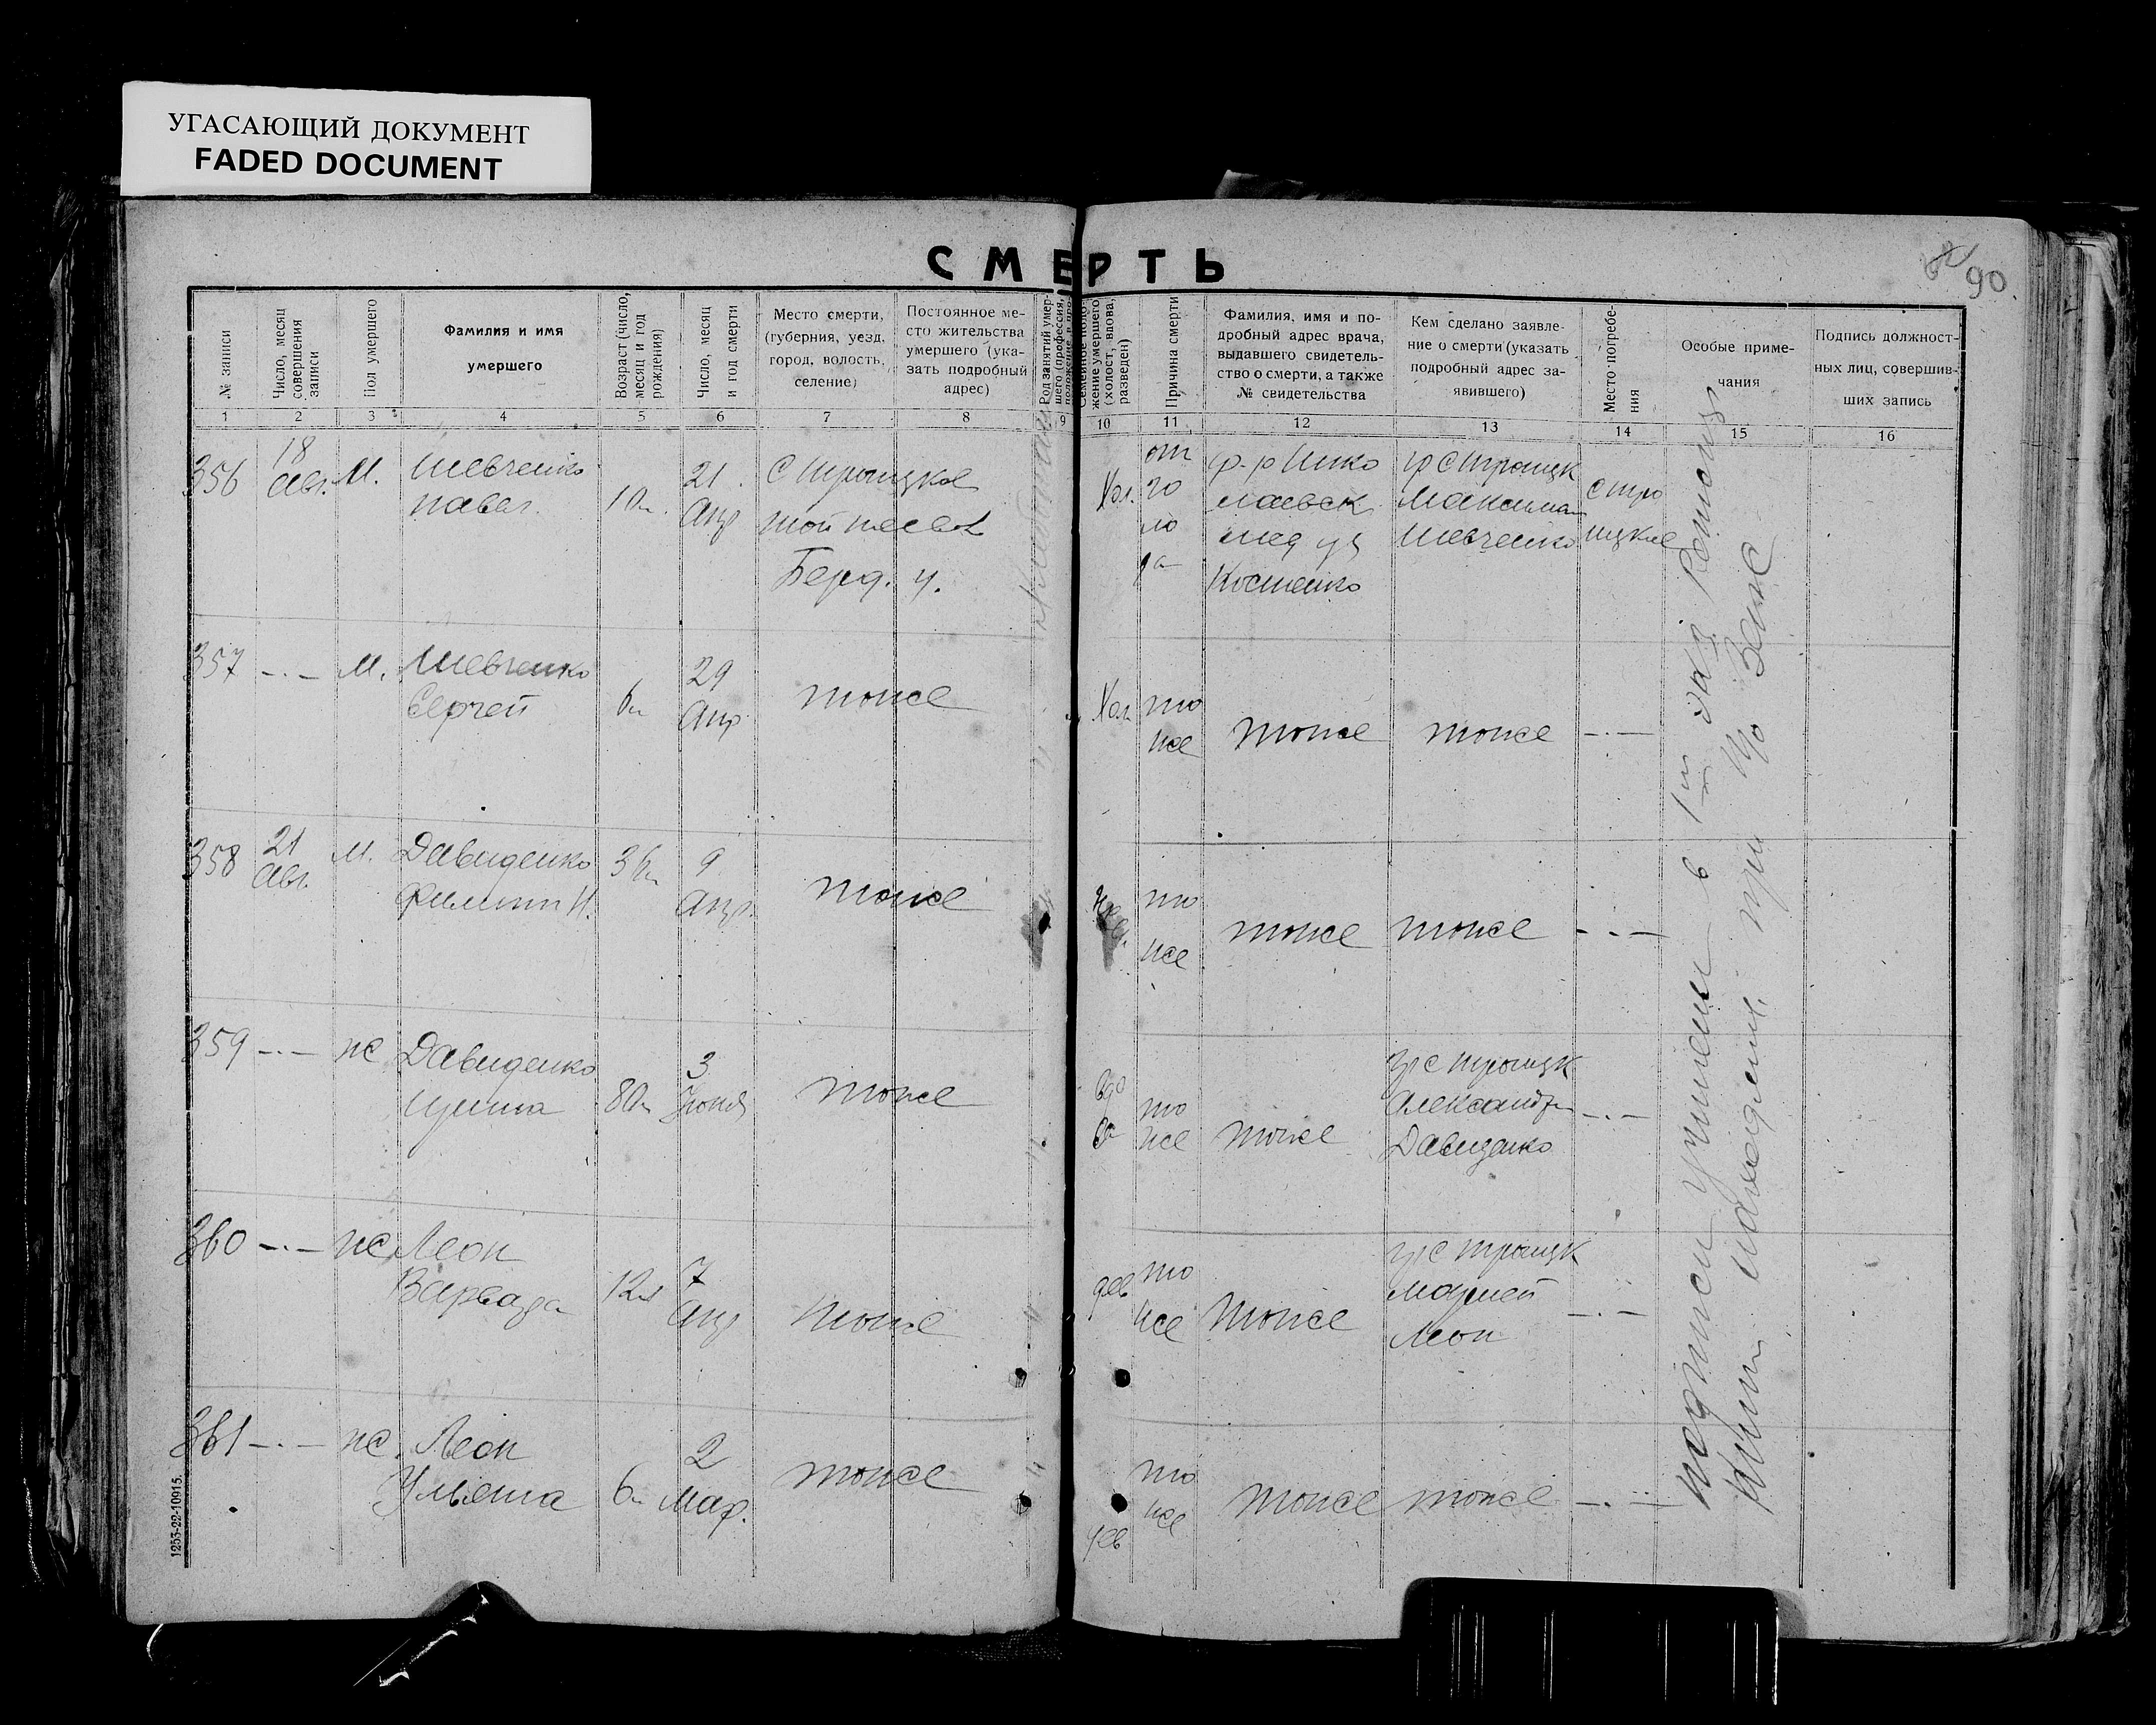 УГАСАЮЩИЙ ДОКУМЕНТ
FADED DOCUMENT
СМЕРТЬ
90.
№ записи
Число, месяц
совершения
записи
Пол умершего
Фамилия и имя
умершего
Возраст (число,
месяц и год
рождения)
Число, месяц
и год смерти
Место смерти,
(губерния, уезд,
город, волость,
селение)
Постоянное ме-
сто жительства
умершего (ука-
зать подробный
адрес)
Род занятий умер-
шего (профессия,
жение умершего
(холост, вдова,
разведен)
Причина смерти
Фамилия, имя и по-
дробный адрес врача,
выдавшего свидетель-
ство о смерти, а также
№ свидетельства
Кем сделано заявле-
ние о смерти (указать
подробный адрес за-
явившего)
Место погребе-
ния
Особые приме-
чания
Подпись должност-
ных лиц, совершив-
ших запись
1 2 3 4 5 6 7 8 9 10 11 12 13 14 15 16
356
18
Авг.
М.
Шевченко
Павел.
10л.
21
Апр
С Троицкое
той же вол
Берд. у.
Хол.
от
го
ло
да
Костенко
гр С Троицк
Максим
Шевченко
С Тро
ицкое
357 -.- М.
Шевченко
Сергей
6л
29
Апр
тоже
Хол
то
же
тоже
тоже
-.-
358
21
Авг.
М.
Давиденко
Филипп И.
36л
9
Апр.
тоже
то
же
тоже
тоже
-.-
359 -.- ж
Давиденко
80л
3
Июня
тоже
вдо
ва
то
же
тоже
гр С Троицк
Александр
Давиденко
-.-
360 -.- ж
Леон
Варвара
12л
7
Апр
тоже
дев
то
же
тоже
гр С Троицк
Леон
-.-
361 -.- ж.
Леон
Ульяна
6л
2
Мар.
тоже
дев
то
же
тоже
тоже
-.-
подписи учинены в
при
1253-22-10915.